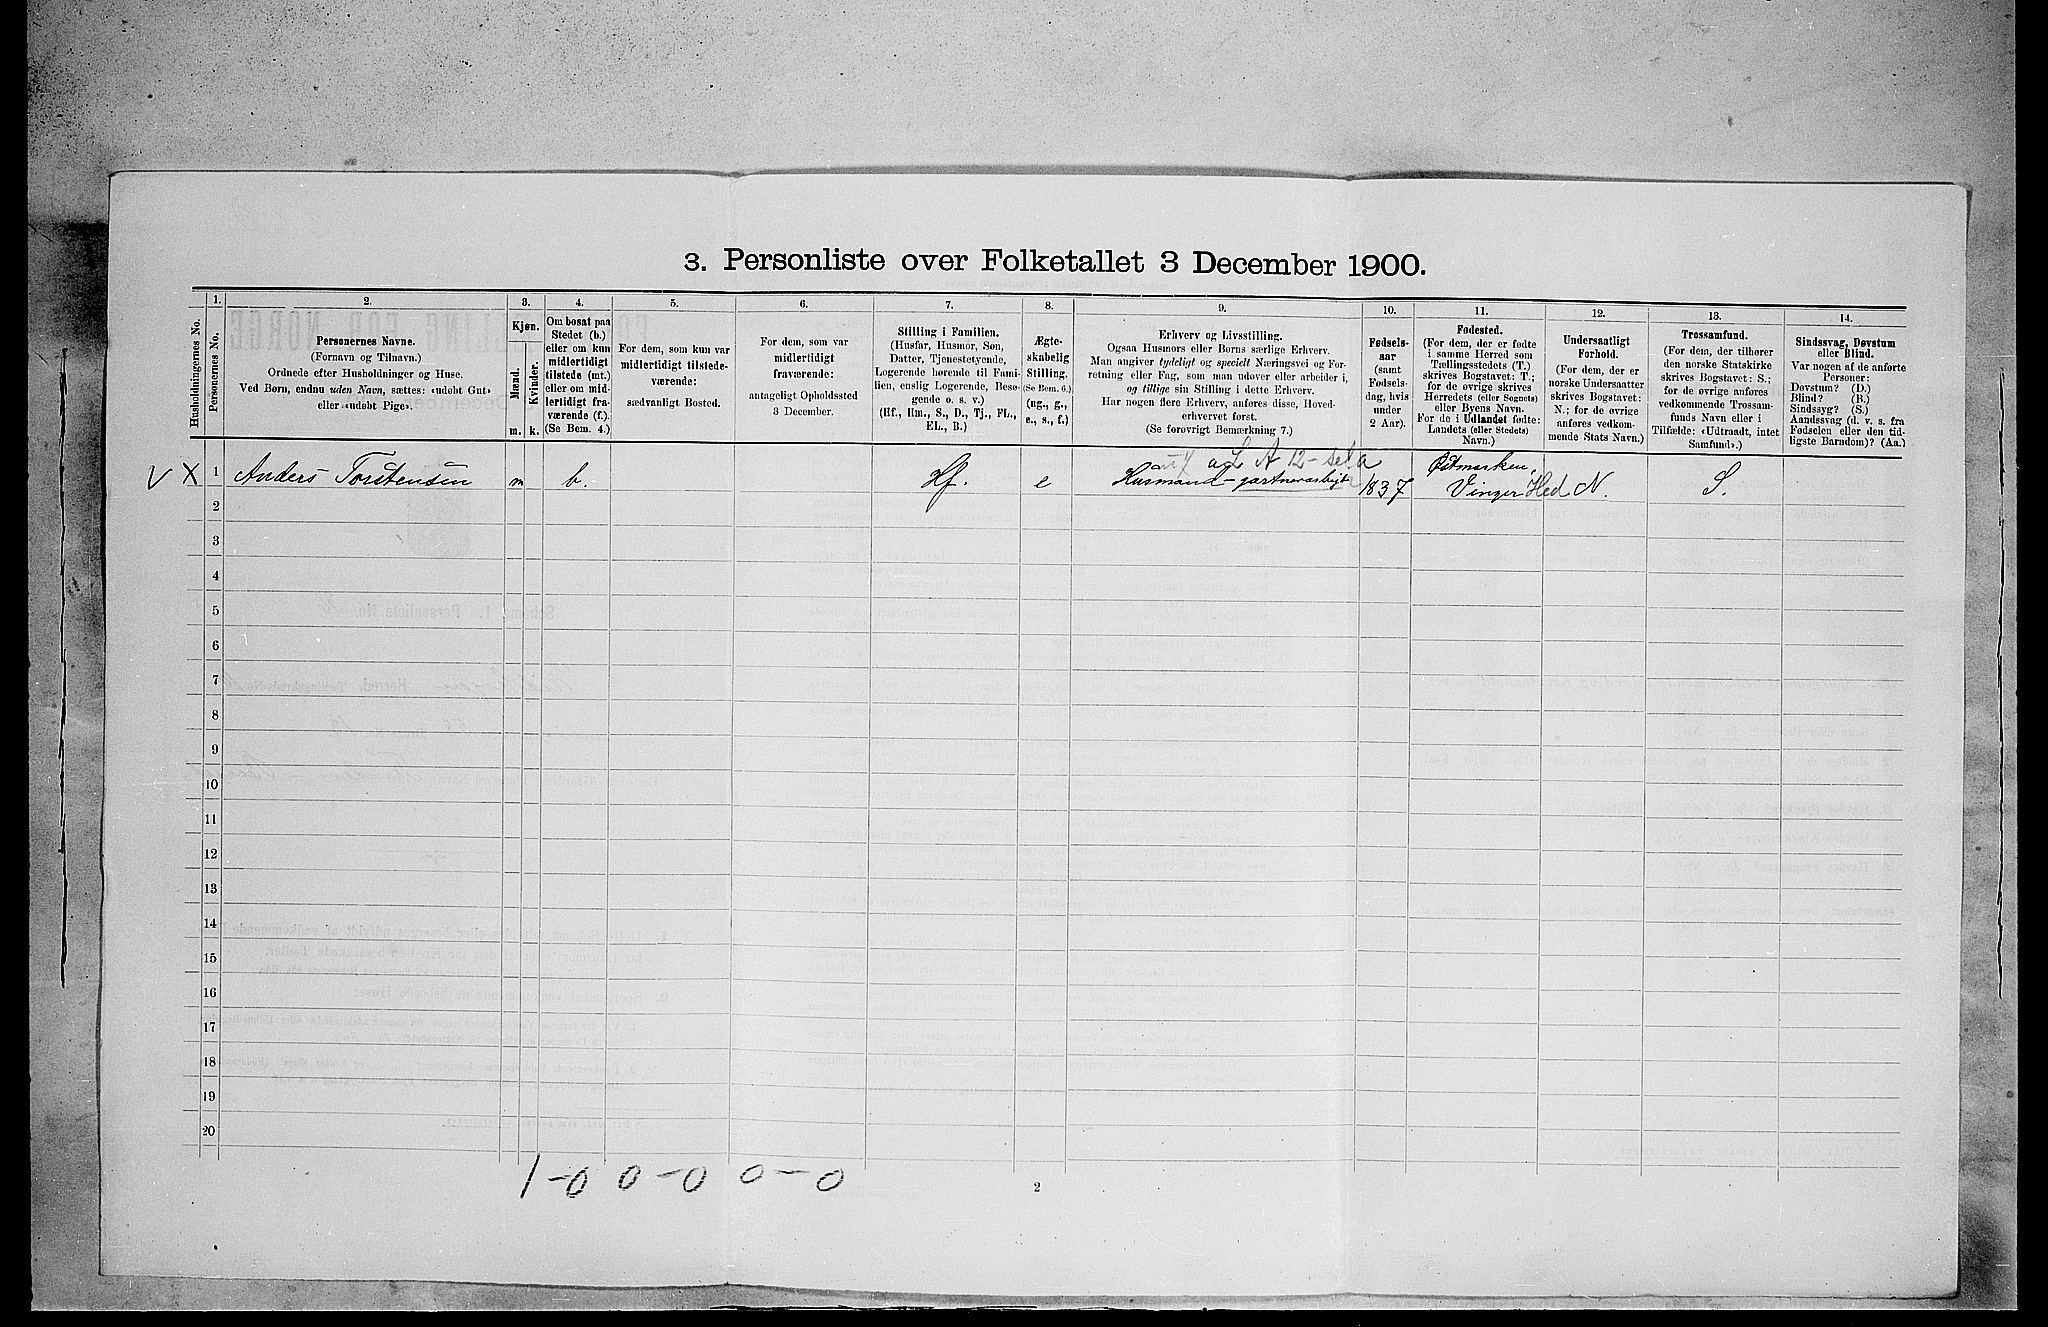 3. Personliste over Folketallet 3 December 1900.
Husholdningernes No.
1.
Personernes No.
2.
Personernes Navne.
(Fornavn og Tilnavn.)
Ordnede efter Husholdninger og Huse.
Ved Børn, endnu uden Navn, sættes: «udøbt Gut»
eller «udøbt Pige».
3.
Kjøn.
Mænd.
Kvinder.
m. k.
4.
Om bosat paa
Stedet (b.)
eller om kun
midlertidigt
tilstede (mt.)
eller om mid-
lertidigt fra-
værende (f.).
(Se Bem. 4.)
5.
For dem, som kun var
midlertidigt tilstede-
værende:
sædvanligt Bosted.
6.
For dem, som var
midlertidigt
fraværende:
antageligt Opholdssted
3 December.
7.
Stilling i Familien.
(Husfar, Husmor, Søn,
Datter, Tjenestetyende,
Logerende hørende til Fami-
lien, enslig Logerende, Besø-
gende o. s. v.)
(Hf., Hm., S., D., Tj., FL.,
EL., B.)
8.
Ægte-
skabelig
Stilling.
(Se Bem. 6.)
(ug., g.,
e., s., f.)
9.
Erhverv og Livsstilling.
Ogsaa Husmors eller Børns særlige Erhverv.
Man angiver tydeligt og specielt Næringsvei og For-
retning eller Fag, som man udøver eller arbeider i,
og tillige sin Stilling i dette Erhverv.
Har nogen flere Erhverv, anføres disse, Hoved-
erhvervet først.
(Se forøvrigt Bemærkning 7.)
10.
Fødsels-
aar
(samt
Fødsels-
dag, hvis
under
2 Aar).
11.
Fødested.
(For dem, der er fødte
i samme Herred som
Tællingsstedets (T.)
skrives Bogstavet: T.;
for de øvrige skrives
Herredets (eller Sognets)
eller Byens Navn.
For de i Udlandet fødte:
Landets (eller Stedets)
Navn.)
12.
Undersaatligt
Forhold.
(For dem, der er
norske Undersaatter
skrives Bogstavet:
N.; for de øvrige
anføres vedkom-
mende Stats Navn.)
13.
Trossamfund.
(For dem, der tilhører
den norske Statskirke
skrives Bogstavet: S.;
for de øvrige anføres
vedkommende Trossam-
funds Navn eller i
Tilfælde: «Udtraadt, intet
Samfund».)
14.
Sindssvag, Døvstum
eller Blind.
Var nogen af de anførte
Personer:
Døvstum? (D.)
Blind? (B.)
Sindssyg? (S.)
Aandssvag (d. v. s. fra
Fødselen eller den tid-
ligste Barndom)? (Aa.)
V X 1 Anders Torstensen m b. Hf. e Husmand - gartnerarbejt 1837 Østmarken, Vinger Hed N. S.
2
3
4
5
6
7
8
9
10
11
12
13
14
15
16
17
18
19
20
1-0 0-0 0-0
2